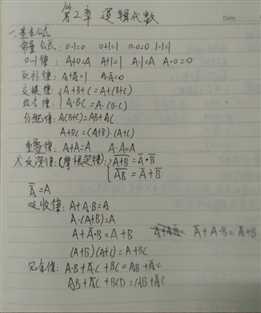 第2章 逻辑代数
Date
一.基本公式
常量公式: 0·1=0 0+1=1 0·0=0 1·1=1
0-1律: A+0=A A+1=1 A·1=A A·0=0
互补律: A+A̅=1 A·A̅=0
交换律: A+B+C=A+(B+C)
结合律: A·B·C=A·(B·C)
分配律: A(B+C)=AB+AC
A+BC=(A+B)·(A+C)
重叠律: A+A=A A·A=A
大反演律:(摩根定律) A̅+̅B̅=A̅·B̅
A̅B̅=A̅+B̅
A̿=A
吸收律: A+A·B=A
A·(A+B)=A
A+A̅·B=A+B A̅+A·B=A̅+B
(A+B)(A+C)=A+BC
冗余律: A·B+A̅·C+BC=AB+A̅C
AB+A̅C+BCD=AB+A̅C